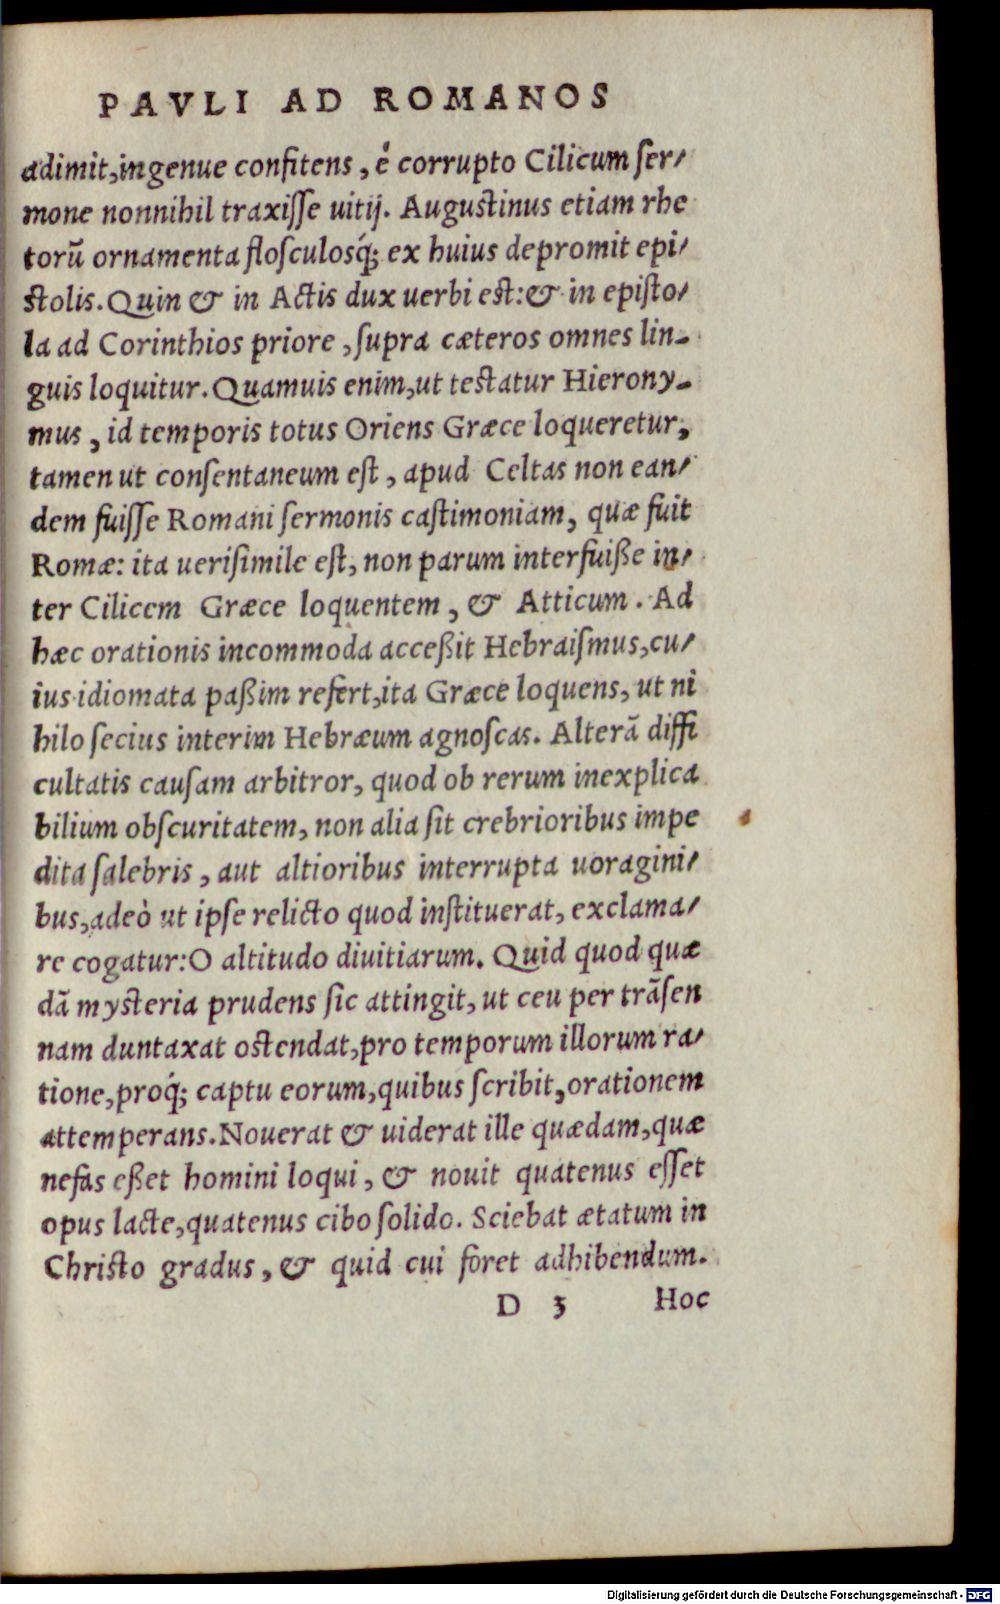 PAVLI AD ROMANOS
adimit, ingenue confitens, é corrupto Cilicum ſer-
mone nonnihil traxiſſe uitij. Auguſtinus etiam rhe
torũ ornamenta floſculosq́; ex huius depromit epi-
ſtolis. Quin & in Actis dux uerbi eſt: & in epiſto-
la ad Corinthios priore, ſupra cæteros omnes lin-
guis loquitur. Quamuis enim, ut teſtatur Hierony-
mus, id temporis totus Oriens Græce loqueretur,
tamen ut conſentaneum eſt, apud Celtas non ean-
dem fuiſſe Romani ſermonis caſtimoniam, quæ fuit
Romæ: ita ueriſimile eſt, non parum interfuiße in-
ter Cilicem Græce loquentem, & Atticum. Ad
hæc orationis incommoda acceßit Hebraiſmus, cu-
ius idiomata paßim refert, ita Græce loquens, ut ni
hilo ſecius interim Hebræum agnoſcas. Alterã diffi
cultatis cauſam arbitror, quod ob rerum inexplica
bilium obſcuritatem, non alia ſit crebrioribus impe
dita ſalebris, aut altioribus interrupta uoragini-
bus, adeò ut ipſe relicto quod inſtituerat, exclama-
re cogatur: O altitudo diuitiarum. Quid quod quæ
dã myſteria prudens ſic attingit, ut ceu per trãſen
nam duntaxat oſtendat, pro temporum illorum ra-
tione, proq́; captu eorum, quibus ſcribit, orationem
attemperans. Nouerat & uiderat ille quædam, quæ
nefas eßet homini loqui, & nouit quatenus eſſet
opus lacte, quatenus cibo ſolido. Sciebat ætatum in
Chriſto gradus, & quid cui foret adhibendum.
D 3 Hoc
Digitalisierung gefördert durch die Deutsche Forschungsgemeinschaft - DFG